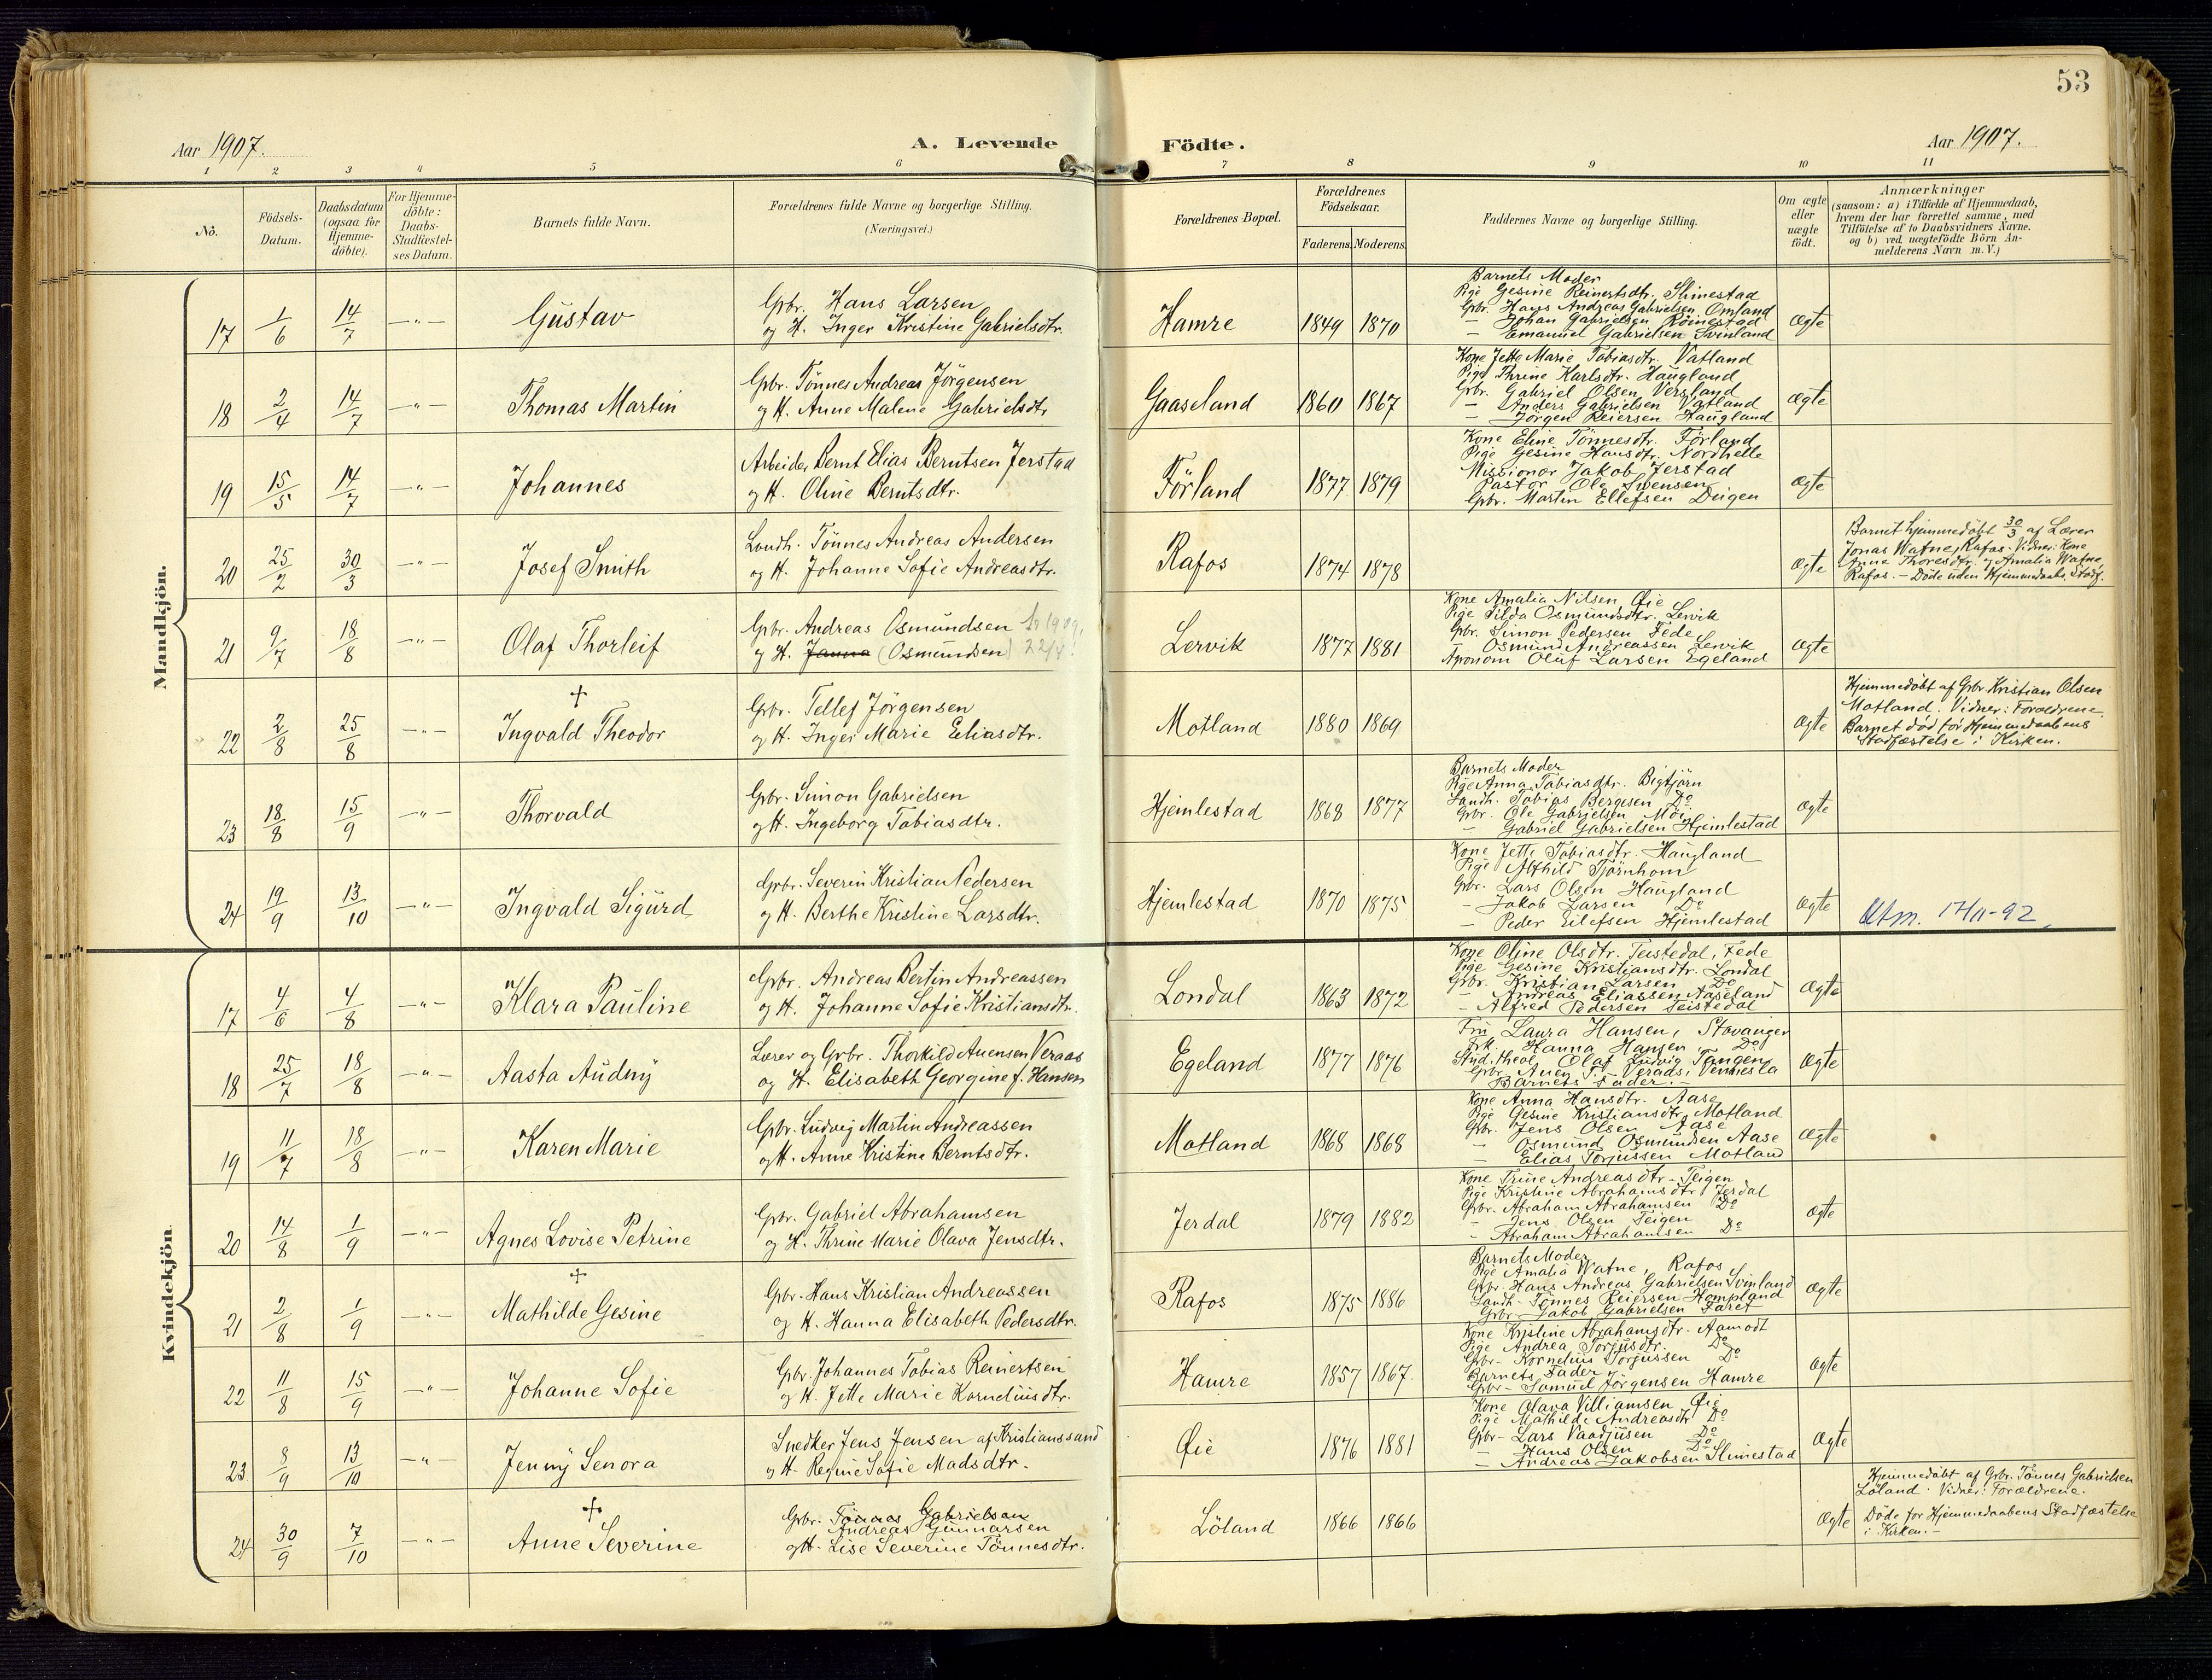 53
Aar 1907.
A. Levende Födte.
Aar 1907.
1 2 3 4 5 6 7 8 9 10 11
Nô.
Födsels-
Datum.
Daabsdatum
(ogsaa for
Hjemme-
döbte).
For Hjemme-
döbte:
Daabs-
Stadfæstel-
ses Datum.
Barnets fulde Navn.
Forældrenes fulde Navne og borgerlige Stilling.
(Næringsvei.)
Forældrenes Bopæl.
Forældrenes
Födselsaar.
Faderens. Moderens.
Faddernes Navne og borgerlige Stilling.
Om ægte
eller
uægte
födt.
Anmærkninger
(saasom: a) i Tilfælde af Hjemmedaab,
hvem der har forrettet samme, med
Tilföielse af to Daabsvidners Navne.
og b) ved uægtefödte Börn An-
melderens Navn m. V.)
Mandkjön.
17 1/6 14/7 —"— Gustav
Gbr. Hans Larsen
og H. Inger Kristine Gabrielsdtr.
Hamre 1849 1870
Barnets Moder
Pige Gesine Reinertsdtr. Slimestad
Gbr. Hans Andreas Gabrielsen Omland
— Johan Gabrielsen Röinestad
— Emanuel Gabrielsen Svinland
Ægte
18 2/4 14/7 —"— Thomas Martin
Gbr. Tönnes Andreas Jörgensen
og H. Anne Malene Gabrielsdtr
Gaaseland 1860 1867
Kone Jette Marie Tobiasdtr. Vatland
Pige Thrine Karlsdtr. Haugland
Gbr. Gabriel Olsen Versland
— Anders Gabrielsen Vatland
— Jörgen Reiersen Haugland
Ægte
19 15/5 14/7 —"— Johannes
Arbeider Bernt Elias Berntsen Jerstad
og H. Oline Berntsdtr.
Förland 1877 1879
Kone Eline Tönnesdtr. Förland
Pige Gesine Hansdtr. Nordhelle
Missionær Jakob Jerstad
Pastor Ole Svensen
Gbr. Martin Ellefsen Dugen
Ægte
20 25/2 30/3 —"— Josef Smith
Landh. Tönnes Andreas Andersen
og H. Johanne Sofie Andreasdtr.
Rafos 1874 1878
Ægte
Barnet hjemmedöbt 30/3 af Lærer
Jonas Watne, Rafos. Vidner: Kone
Anna Thoresdtr. og Amalia Watne,
Rafos. — Döde uden Hjemmedaabs Stadf.
21 9/7 18/8 —"— Olaf Thorleif
Gbr. Andreas Osmundsen
og H. Janna (Osmundsen)
Lervik 1877 1881
Kone Amalia Nilsen Öie
Pige Tilda Osmundsdtr. Lervik
Gbr. Simon Pedersen Fede
Osmund Andreassen Lervik
Oluf Larsen Egeland
Ægte
22 2/8 25/8 —"— + Ingvald Theodor
Gbr. Tellef Jörgensen
og H. Inger Marie Eliasdtr.
Motland 1880 1869
Ægte
Hjemmedöbt af Gbr. Kristian Olsen
Motland. Vidner: Forældrene.
Barnet död för Hjemmedaabens
Stadfæstelse i Kirken.
23 18/8 15/9 —"— Thorvald
Gbr. Simon Gabrielsen
og H. Ingeborg Tobiasdtr.
Hjemlestad 1868 1877
Barnets Moder
Pige Anna Tobiasdtr. Bigtjörn
Landh. Tobias Bergesen Do
Gbr. Ole Gabrielsen Möi
— Gabriel Gabrielsen Hjemlestad
Ægte
24 19/9 13/10 —"— Ingvald Sigurd
Gbr. Severin Kristian Pedersen
og H. Berthe Kristine Larsdtr.
Hjemlestad 1870 1875
Kone Jette Tobiasdtr. Haugland
Pige Alfhild Tjörnhom
Gbr. Lars Olsen Haugland
— Jakob Larsen Do
— Peder Eilefsen Hjemlestad
Ægte
17/11-92
Kvindekjön
17 4/6 4/8 —"— Klara Pauline
Gbr. Andreas Bertin Andreassen
og H. Johanne Sofie Kristiansdtr.
Londal 1863 1872
Kone Oline Olsdtr. Teistedal, Fede
Pige Gesine Kristiansdtr. Londal
Gbr. Kristian Larsen Do
— Andreas Eliassen Aaseland
— Alfred Pedersen Teistedal
Ægte
18 25/7 18/8 —"— Aasta Audny
Lærer og Gbr. Thorkild Auensen Veraas
og H. Elisabeth Georgine f. Hansen
Egeland 1877 1876
Fru Laura Hansen, Stavanger
Frk. Hanna Hansen, Do
Stud. theol. Olaf Ludvig Tangen
Gbr. Auen T. Veraas, Vennesla
Barnets Fader. —
Ægte
19 11/7 18/8 —"— Karen Marie
Gbr. Ludvig Martin Andreassen
og H. Anne Kristine Berntsdtr.
Motland 1868 1868
Kone Anna Hansdtr. Aase
Pige Gesine Kristiansdtr. Motland
Gbr. Jens Olsen Aase
— Osmund Osmundsen Aase
— Elias Torjussen Motland
Ægte
20 14/8 1/9 —"— Agnes Lovise Petrine
Gbr. Gabriel Abrahamsen
og H. Thrine Marie Olava Jensdtr.
Jerdal 1879 1882
Kone Trine Andreasdtr. Teigen
Pige Kristine Abrahamsdtr Jerdal
Gbr. Abraham Abrahamsen Do
— Jens Olsen Teigen
— Abraham Abrahamsen Do
Ægte
21 2/8 1/9 —"— + Mathilde Gesine
Gbr. Hans Kristian Andreassen
og H. Hanna Elisabeth Pedersdtr.
Rafos 1875 1886
Barnets Moder
Pige Amalia Watne, Rafos
Gbr. Hans Andreas Gabrielsen Svinland
Landh. Tönnes Reiersen Hompland
Gbr. Jakob Gabrielsen Faret
Ægte
22 11/8 15/9 —"— Johanne Sofie
Gbr. Johannes Tobias Reinertsen
og H. Jette Marie Korneliusdtr.
Hamre 1857 1867.
Kone Kristine Abrahamsdtr. Aamodt
Pige Andrea Torjusdtr. Do
Gbr. Kornelius Torjussen Do
Barnets Fader
Gbr. Samuel Jörgensen Hamre
Ægte
23 8/9 13/10 —"— Jenny Senora
Snedker Jens Jensen af Kristianssand
og H. Regine Sofie Madsdtr.
Öie 1876 1881
Kone Olava Villiamsen Öie
Pige Mathilde Andreasdtr Do
Gbr. Lars Vaadjusen Do
— Hans Olsen Do
— Andreas Jakobsen Slimestad
Ægte
24 30/9 7/10 —"— + Anne Severine
Gbr. Tönnes Gabrielsen
Andreas Gunnarsen
og H. Lise Severine Tönnesdtr.
Löland 1866 1866
Ægte
Hjemmedöbt af Gbr. Tönnes Gabrielsen
Löland. Vidner: Forældrene.
Döde for Hjemmedaabens Stadfæstelse
i Kirken. —